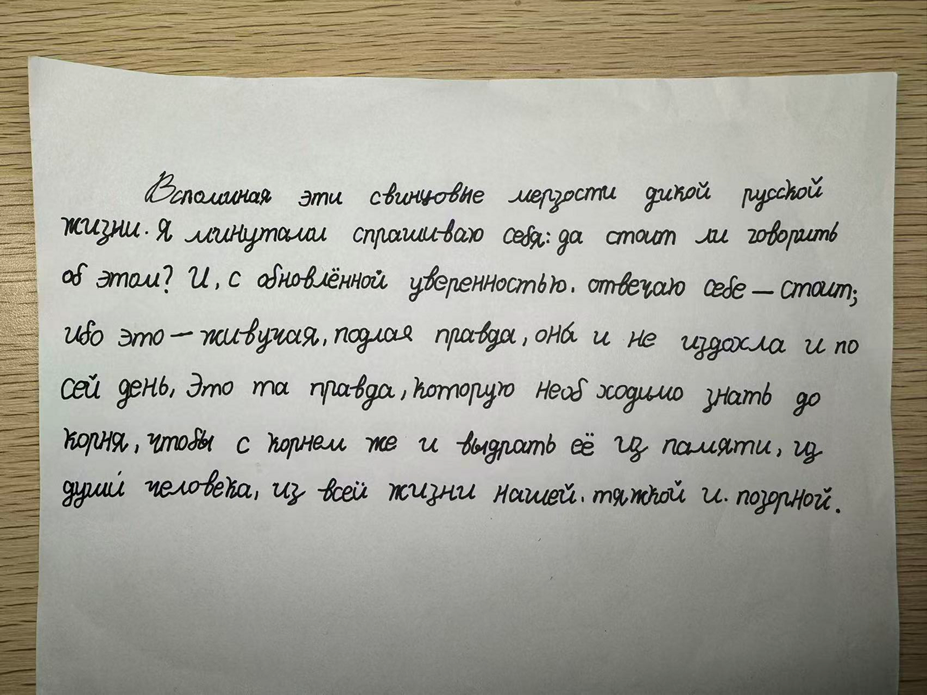 Вспоминая эти свинцовые мерзости дикой русской
жизни. Я минутами спрашиваю себя: да стоит ли говорить
об этом? И, с обновлённой уверенностью. отвечаю себе — стоит;
ибо это — живучая, подлая правда, она и не издохла и по
сей день, Это та правда, которую необ ходимо знать до
корня, чтобы с корнем же и выдрать её из памяти, из
души человека, из всей жизни нашей. тяжкой и. позорной.